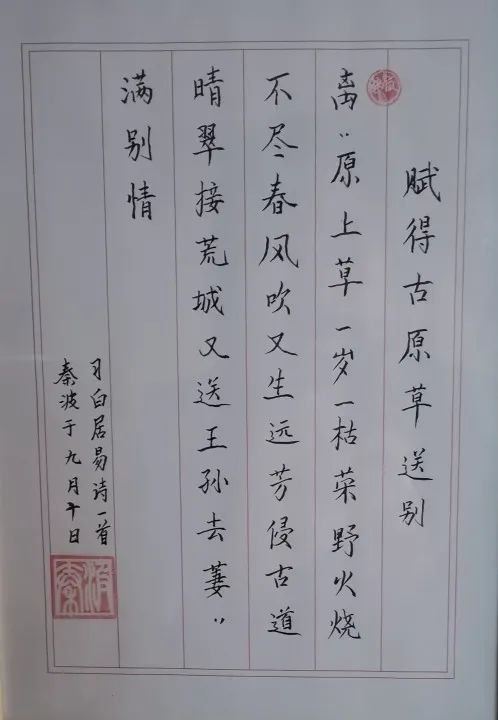 赋得古原草送别
离〻原上草一岁一枯菜野火烧
不尽春风吹又生远芳侵古道
晴翠接荒城又送王孙去萋〻
满别情
习白居易诗一首
秦波于九月十日